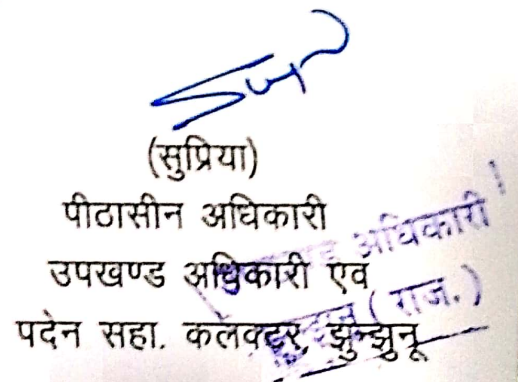 (सुप्रिया)
पीठासीन अधिकारी
उपखण्ड अधिकारी एवं
पदेन सहा. कलक्टर, झुन्झुनू
अधिकारी
(राज.)